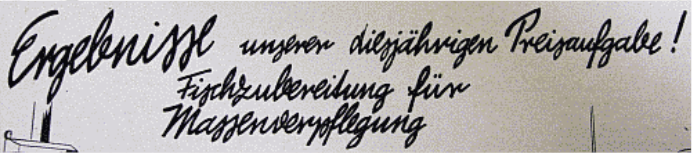 Ergebnisse unserer diesjährigen Preisaufgabe!
Fischzubereitung für
Massenverpflegung